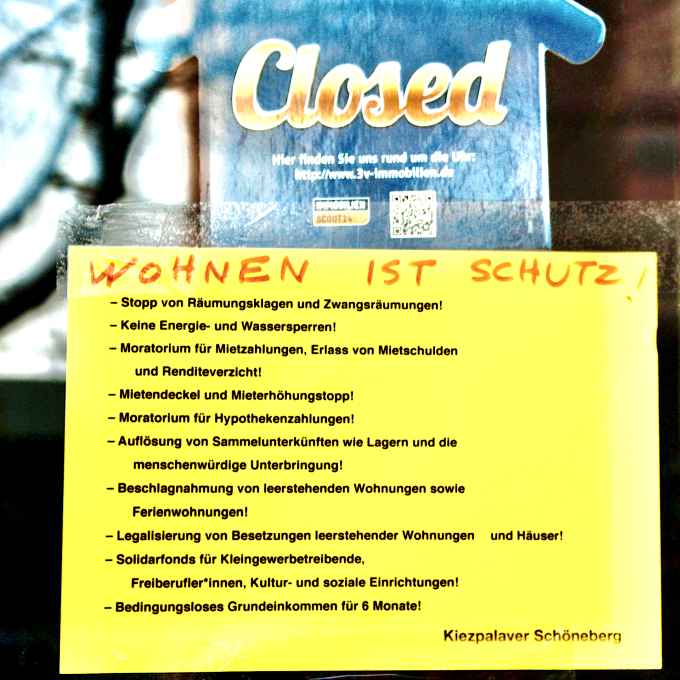 Closed
Hier finden Sie uns rund um die Uhr:
http://www.3v-immobilien.de
IMMOBILIEN
SCOUT24
WOHNEN IST SCHUTZ!
– Stopp von Räumungsklagen und Zwangsräumungen!
– Keine Energie- und Wassersperren!
– Moratorium für Mietzahlungen, Erlass von Mietschulden
und Renditeverzicht!
– Mietendeckel und Mieterhöhungstopp!
– Moratorium für Hypothekenzahlungen!
– Auflösung von Sammelunterkünften wie Lagern und die
menschenwürdige Unterbringung!
– Beschlagnahmung von leerstehenden Wohnungen sowie
Ferienwohnungen!
– Legalisierung von Besetzungen leerstehender Wohnungen und Häuser!
– Solidarfonds für Kleingewerbetreibende,
Freiberufler*innen, Kultur- und soziale Einrichtungen!
– Bedingungsloses Grundeinkommen für 6 Monate!
Kiezpalaver Schöneberg